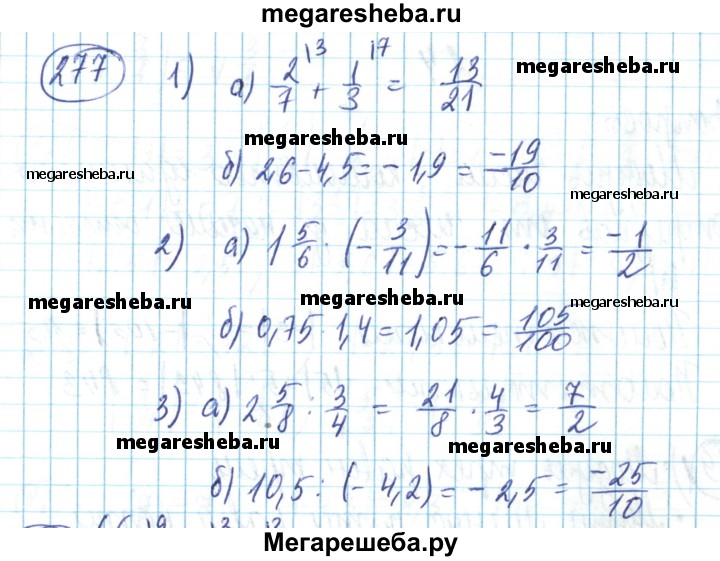 megaresheba.ru
277 1) а) 2/7 |3 + 1/3 |7 = 13/21
megaresheba.ru
megaresheba.ru
б) 2,6 - 4,5 = - 1,9 = -19/10
megaresheba.ru
megaresheba.ru
2) а) 1 5/6 · (- 3/11) = - 11/6 · 3/11 = -1/2
megaresheba.ru
megaresheba.ru
megaresheba.ru
б) 0,75 · 1,4 = 1,05 = 105/100
3) а) 2 5/8 : 3/4 = 21/8 · 4/3 = 7/2
megaresheba.ru
megaresheba.ru
б) 10,5 : (- 4,2) = - 2,5 = -25/10
Мегарешеба.ру